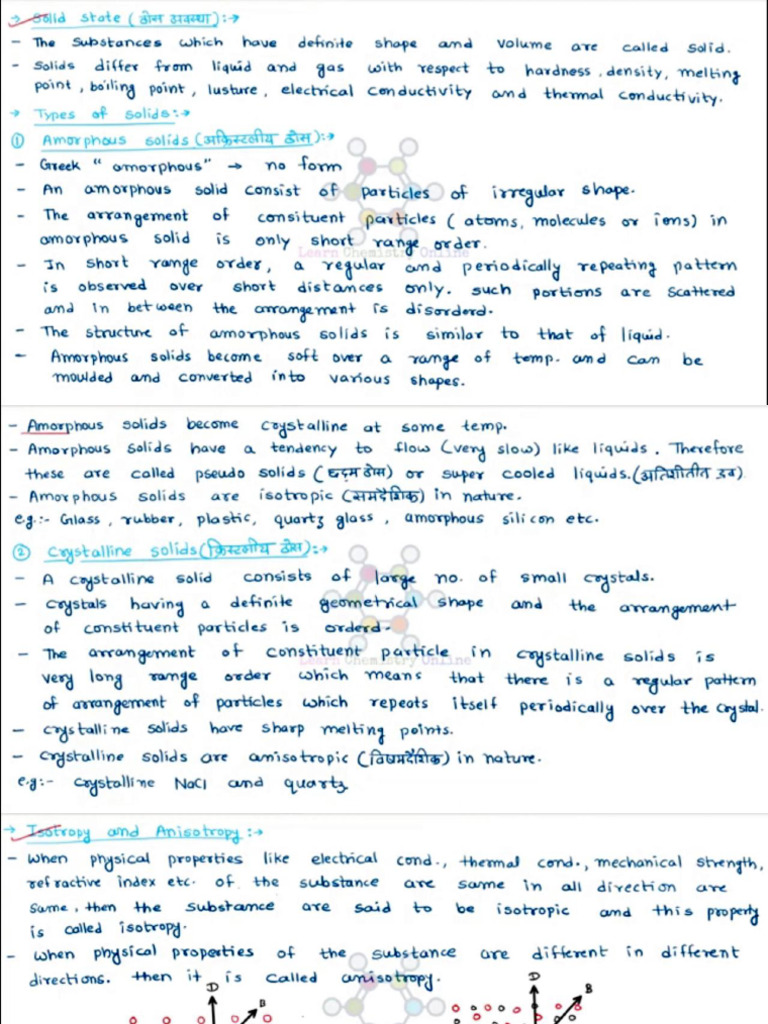 → Solid state (ठोस अवस्था) :→
- The substances which have definite shape and volume are called solid.
- Solids differ from liquid and gas with respect to hardness, density, melting
point, boiling point, lusture, electrical conductivity and thermal conductivity.
→ Types of solids:→
① Amorphous solids (अक्रिस्टलीय ठोस) :→
- Greek "amorphous" → no form
- An amorphous solid consist of particles of irregular shape.
- The arrangement of consituent particles (atoms, molecules or ions) in
amorphous solid is only short range order.
Learn Chemistry Online
- In short range order, a regular and periodically repeating pattern
is observed over short distances only. such portions are scattered
and in between the arrangement is disorderd.
- The structure of amorphous solids is similar to that of liquid.
- Amorphous solids become soft over a range of temp. and can be
moulded and converted into various shapes.
- Amorphous solids become crystalline at some temp.
- Amorphous solids have a tendency to flow (very slow) like liquids. Therefore
these are called pseudo solids (छद्दम ठोस) or super cooled liquids. (अतिशीतीत द्रव)
- Amorphous solids are isotropic (समदैशिक) in nature.
e.g.:- Glass, rubber, plastic, quartz glass, amorphous silicon etc.
② Crystalline solids (क्रिस्टलीय ठोस) :→
- A crystalline solid consists of large no. of small crystals.
- Crystals having a definite geometrical shape and the arrangement
of constituent particles is orderd.
- The arrangement of constituent particle in crystalline solids is
Learn Chemistry Online
very long range order which means that there is a regular pattern
of arrangement of particles which repeats itself periodically over the crystal.
- Crystalline solids have sharp melting points.
- Crystalline solids are anisotropic (विषमदैशिक) in nature.
e.g:- Crystalline NaCl and quartz
→ Isotropy and Anisotropy :→
- When physical properties like electrical cond., thermal cond., mechanical strength,
refractive index etc. of the substance are same in all direction are
same, then the substance are said to be isotropic and this property
is called isotropy.
- When physical properties of the substance are different in different
directions. then it is called anisotropy.
D B D B